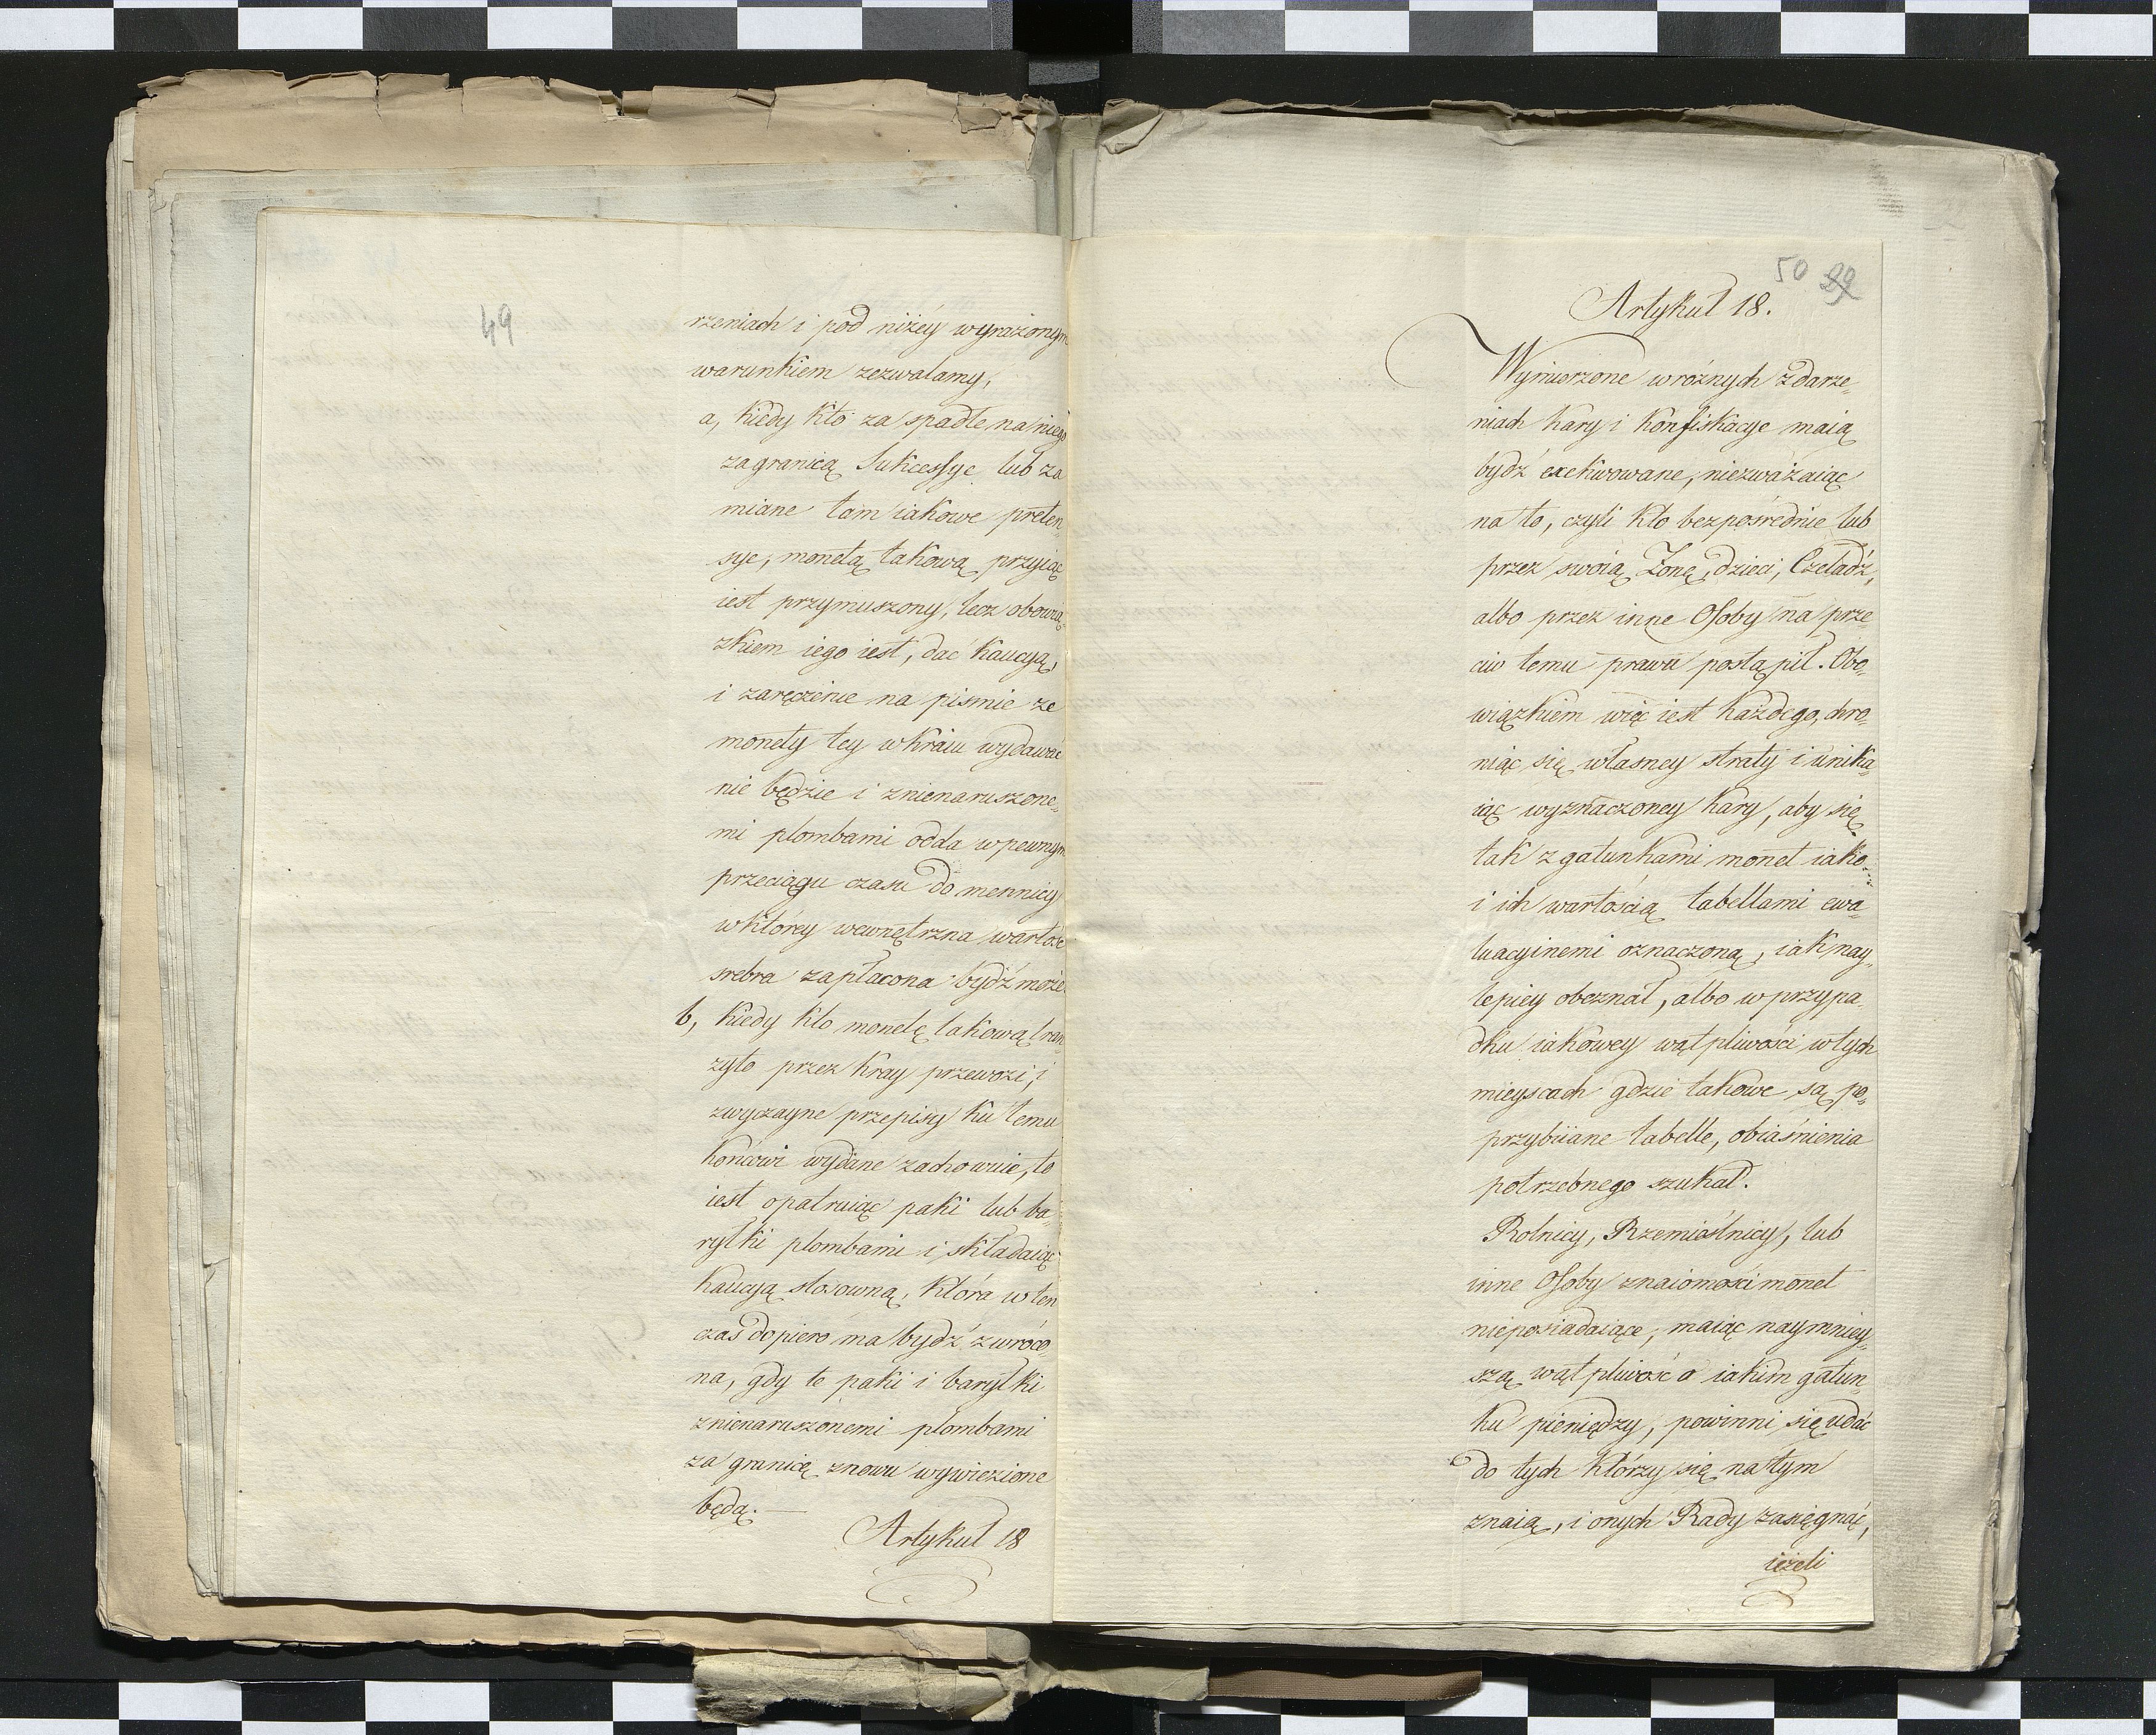 49
rzeniach i pod niżéy wyrażonym
warunkiem zezwalamy,
a, kiedy kto za spadłe na niego
zagranicą Sukcessye lub za
miane tam iakowe preten
sye, monetą takową przyiąć
iest przymuszony, lecz obowią„
zkiem iego iest, dać Kaucyą,
i zaręczenie na pismie ze
monety tey w kraiu wydawać
nie będzie i znienaruszone„
mi plombami odda w pewnym
przeciągu czasu do mennicy
w którey wewnętrzna wartość
srebra zapłacona bydź może
b, kiedy kto monetę takową tran
zyto przez Kray przewozi, i
zwyczayne przepisy ku temu
końcowi wydane zachowuie, to
iest opatruiąc paki lub ba„
ryłki plombami i składaiąc
kaucyą stosowną, która w ten
czas dopiero ma bydź zwróco„
na, gdy te paki i baryłki
znienaruszonemi plombami
za granicę znowu wywiezione
będą. —
Artykuł 18
50 29
Artykuł 18.
Wymierzone w różnych zdarze„
niach kary i konfiskacye maią
bydź exekwowane, niezważaiąc
na to, czyli kto bezpośrednie lub
przez swoią Żonę, dzieci, Czeladź,
albo przez inne Osoby na prze„
ciw temu prawu postąpił. Obo„
wiązkiem więc iest każdego, chro„
niąc się własney straty i unika„
iąc wyznaczoney kary, aby się
tak z gatunkami monet iako
i ich wartością tabellami ewa„
luacyinemi oznaczoną, iak nay„
lepiey obeznał, albo w przypa„
dku iakowey wątpliwości w tych
mieyscach gdzie takowe są po„
przybiiane tabelle, obiaśnienia
potrzebnego szukał.
Rolnicy, Rzemieślnicy, lub
inne Osoby znaiomości monet
nieposiadaiące, maiąc naymniey„
szą wątpliwość o iakim gatun„
ku pieniędzy, powinni się udać
do tych którzy się na tym
znaią, i onych Rady zasięgnąć,
ieżeli